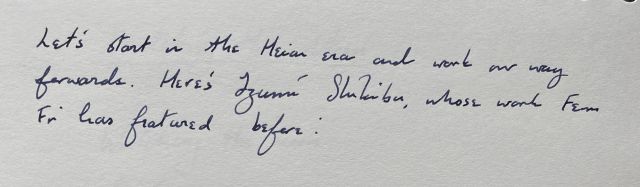 Let's start in the Heian era and work our way
forwards. Here's Izumi Shikibu, whose work Fem
Fri has featured before: